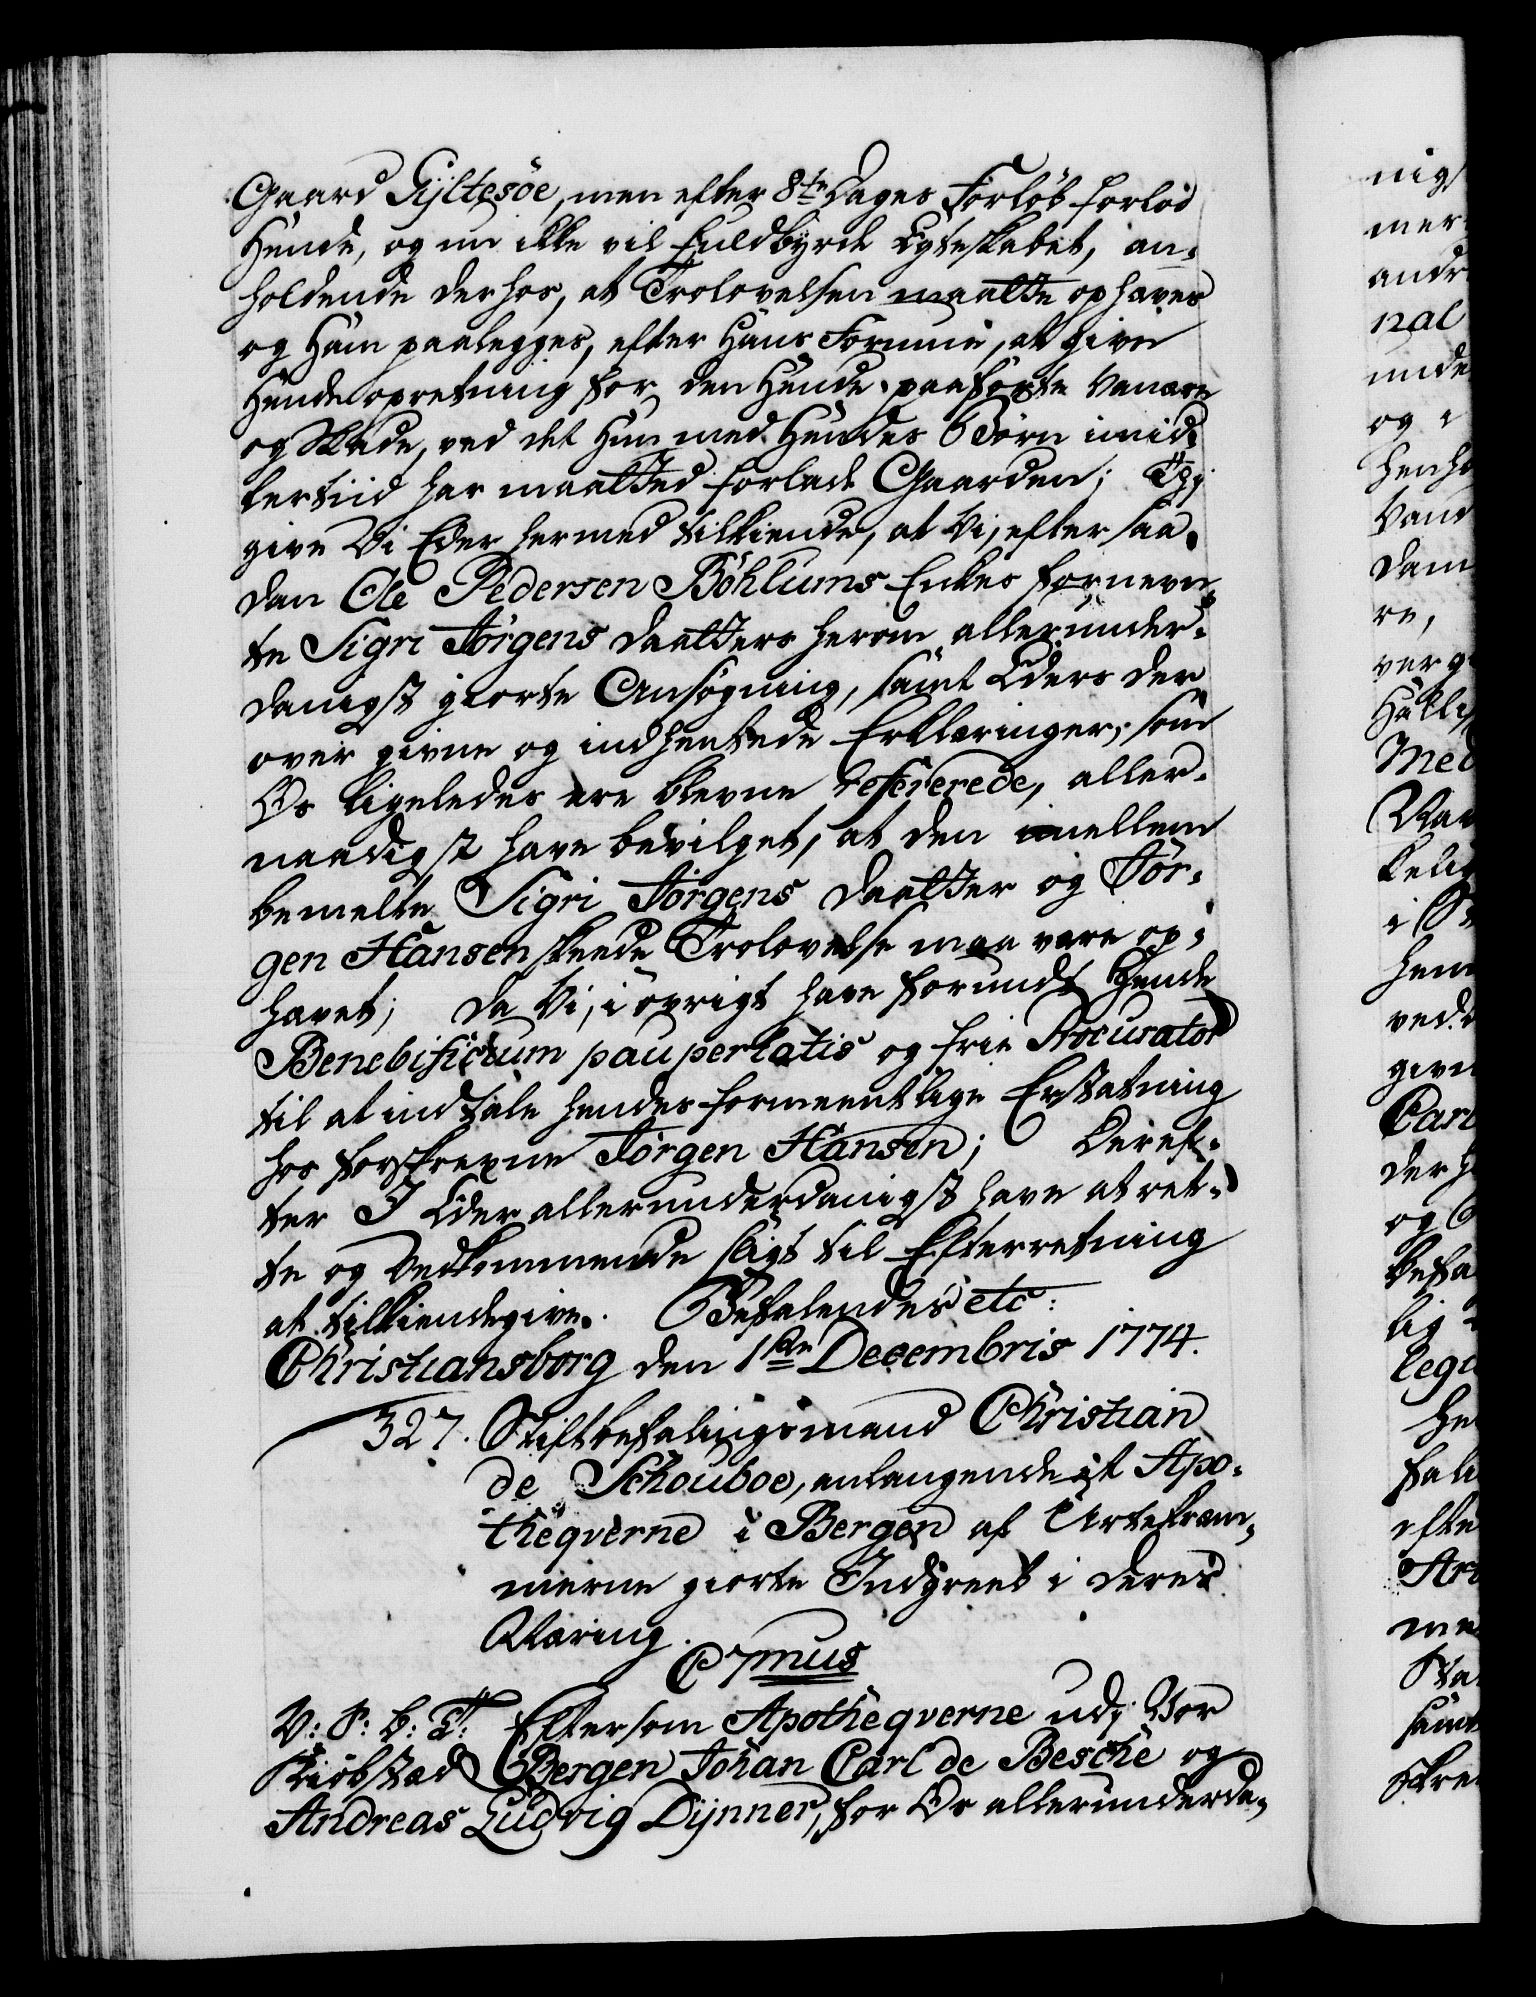 Gaard Gyltesöe, men efter 8te Dages Forløb forlod
Hende, og nu ikke vil fuldbyrde Egteskabet, an¬
holdende derhos, at Trolovelsen maatte ophæves
og Ham paalegges, efter Hans Formue, at give
Hende opretning for den Hende paaførte Vanære
og Skade, ved det Hun med Hendes 6 Børn imid¬
lertiid har maatted forlade Gaarden; Thi
give Vi Eder hermed tilkiende, at Vi, efter saa¬
dan Ole Pedersen Böhlums Enkes fornevn¬
te Sigri Jörgens Daatters herom allerunder¬
danigst giorte Ansøgning, samt Eders der
over givne og indhentede Erklæringer, som
Os ligeledes ere blevne refererede, aller¬
naadigst have bevilget, at den imellem
bemelte Sigri Jörgens Daatter og Jör¬
gen Hansen skeede Trolovelse maa være op¬
hævet; da Vi, i øvrigt have forundt Hende
Benebificium paupertatis og frie Procurator
til at indtale hendes formeentlige Erstatning
hos forskrevne Jörgen Hansen; Deref¬
ter I Eder allerunderdanigst have at ret¬
te og Vedkommende sligt til Efterretning
at tilkiendegive. Befalendes etc:
Christiansborg den 1ste Decembris 1774.
327. Stiftbefalingsmand Christian
de Schouboe, anlangende it Apo¬
theqverne i Bergen af Urtekræm¬
merne giorte Indgreeb i deres
Næring.
C 7mus
V: S: b: T: Eftersom Apotheqverne udj Vor
Kiøbstad Bergen Johan Carl de Besche og
Andreas Ludvig Dynner, for Os allerunderda¬